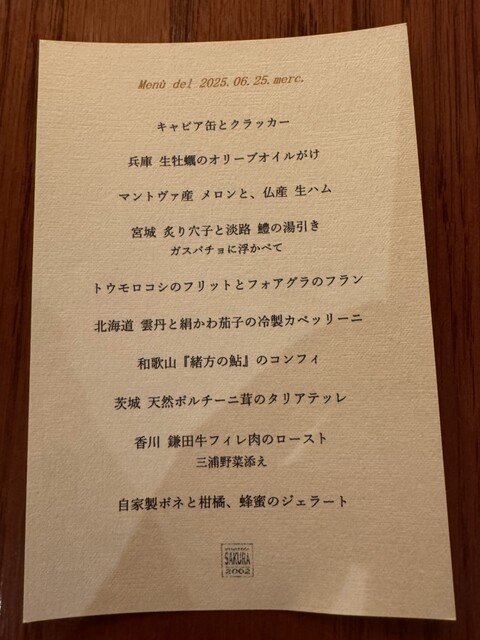 Menù del 2025.06.25.merc.
キャビア缶とクラッカー
兵庫 生牡蠣のオリーブオイルがけ
マントヴァ産 メロンと、仏産 生ハム
宮城 炙り穴子と淡路 鱧の湯引き
ガスパチョに浮かべて
トウモロコシのフリットとフォアグラのフラン
北海道 雲丹と絹かわ茄子の冷製カペッリーニ
和歌山『緒方の鮎』のコンフィ
茨城 天然ポルチーニ茸のタリアテッレ
香川 鎌田牛フィレ肉のロースト
三浦野菜添え
自家製ボネと柑橘、蜂蜜のジェラート
SAKURA
2002